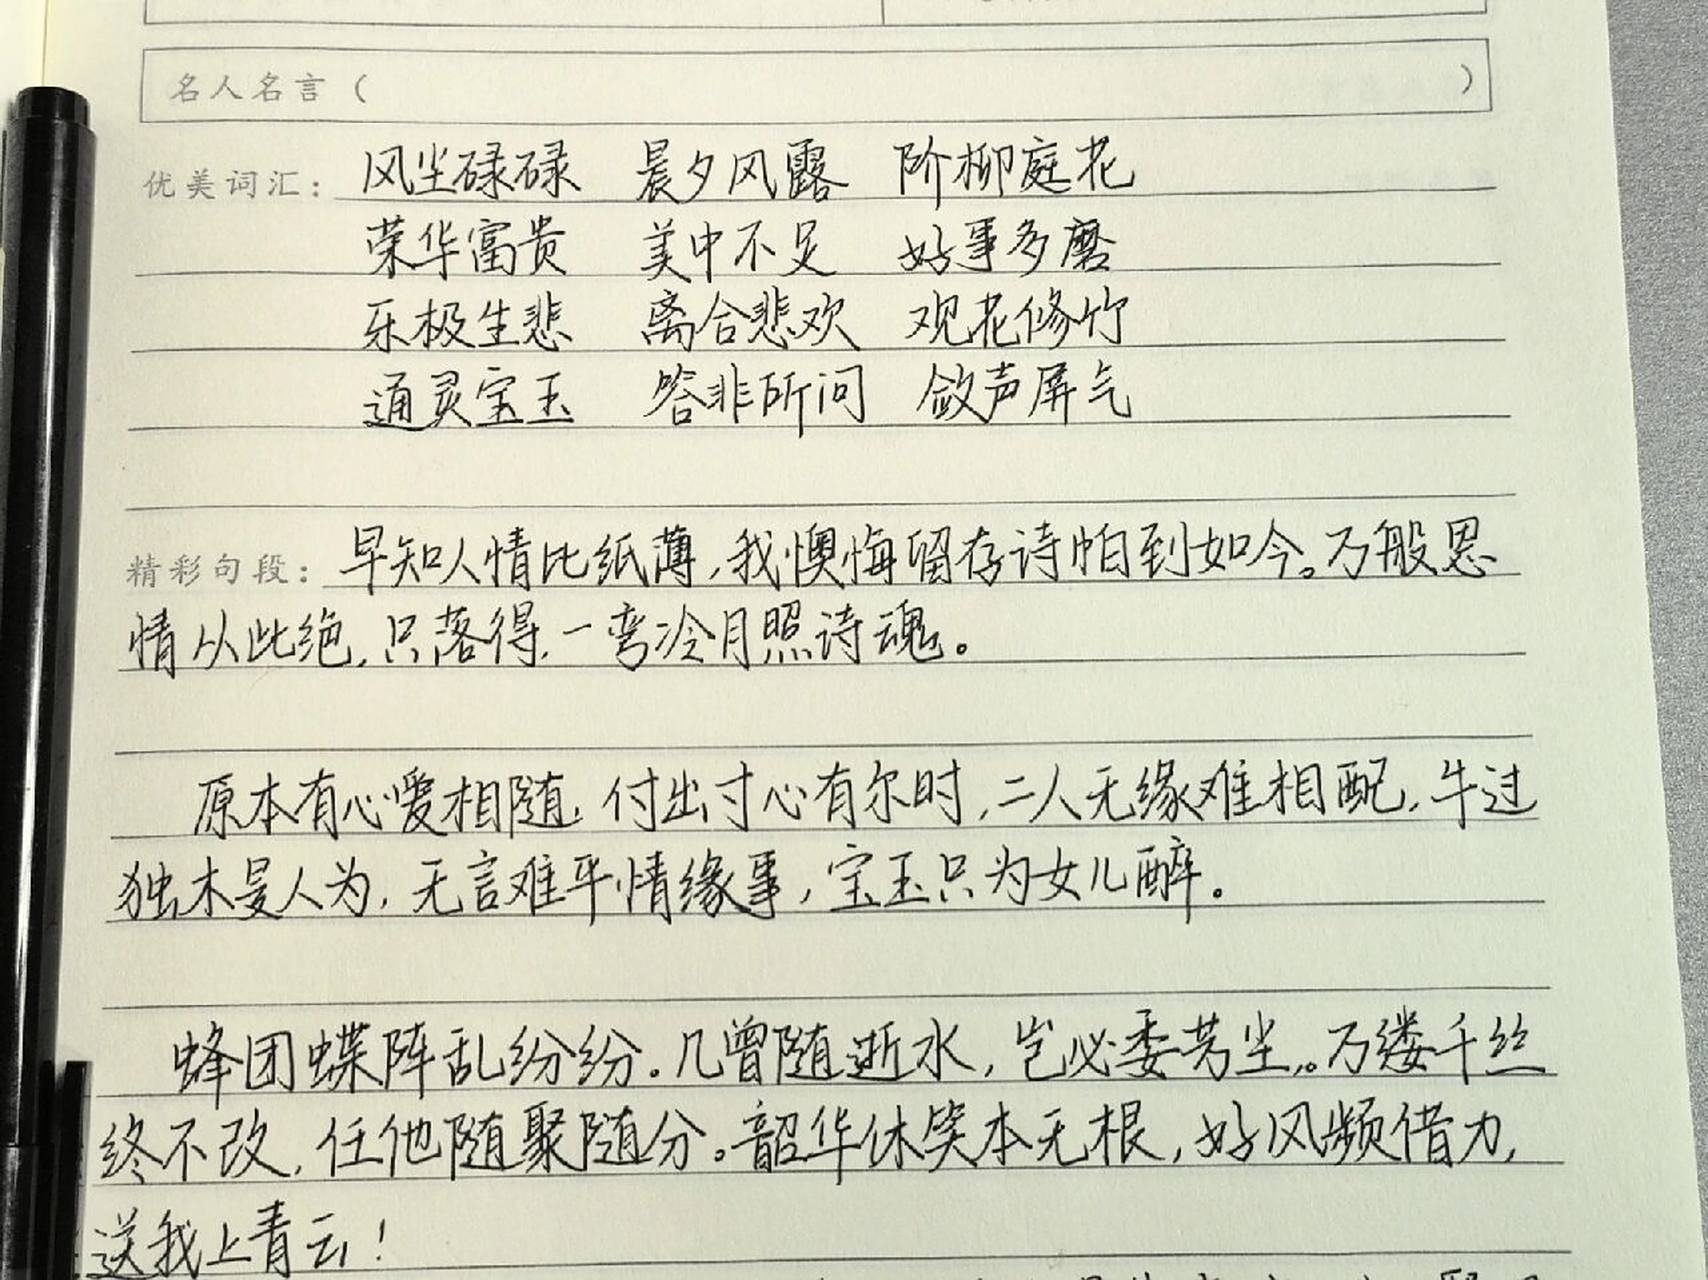 名人名言（ ）
优美词汇：风尘碌碌 晨夕风露 阶柳庭花
荣华富贵 美中不足 好事多磨
乐极生悲 离合悲欢 观花修竹
通灵宝玉 答非所问 敛声屏气
精彩句段：早知人情比纸薄，我懊悔留存诗帕到如今。万般恩
情从此绝，只落得，一弯冷月照诗魂。
原本有心爱相随，付出寸心有尔时，二人无缘难相配，牛过
独木是人为，无言难平情缘事，宝玉只为女儿醉。
蜂团蝶阵乱纷纷。几曾随逝水，岂必委芳尘。万缕千丝
终不改，任他随聚随分。韶华休笑本无根，好风频借力，
送我上青云！